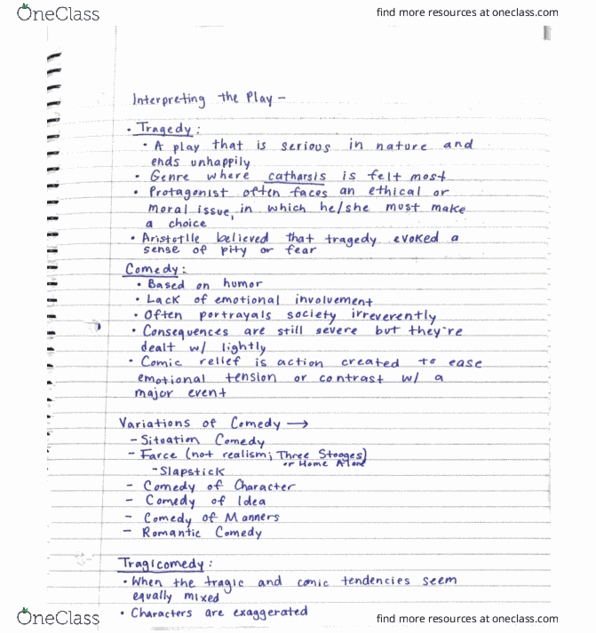 OneClass
find more resources at oneclass.com
Interpreting the Play -
• Tragedy:
• A play that is serious in nature and
ends unhappily
• Genre where catharsis is felt most
• Protagenist often faces an ethical or
moral issue, in which he/she must make
a choice
• Aristotlle believed that tragedy evoked a
sense of pity or fear
Comedy:
• Based on humor
• Lack of emotional involvement
• Often portrayals society irreverently
• Consequences are still severe but they're
dealt w/ lightly
• Comic relief is action created to ease
emotional tension or contrast w/ a
major event
Variations of Comedy →
- Situation Comedy
- Farce (not realism; Three Stooges)
or Home Alone
- Slapstick
- Comedy of Character
- Comedy of Idea
- Comedy of Manners
- Romantic Comedy
Tragicomedy:
• When the tragic and comic tendencies seem
equally mixed
• Characters are exaggerated
OneClass
find more resources at oneclass.com